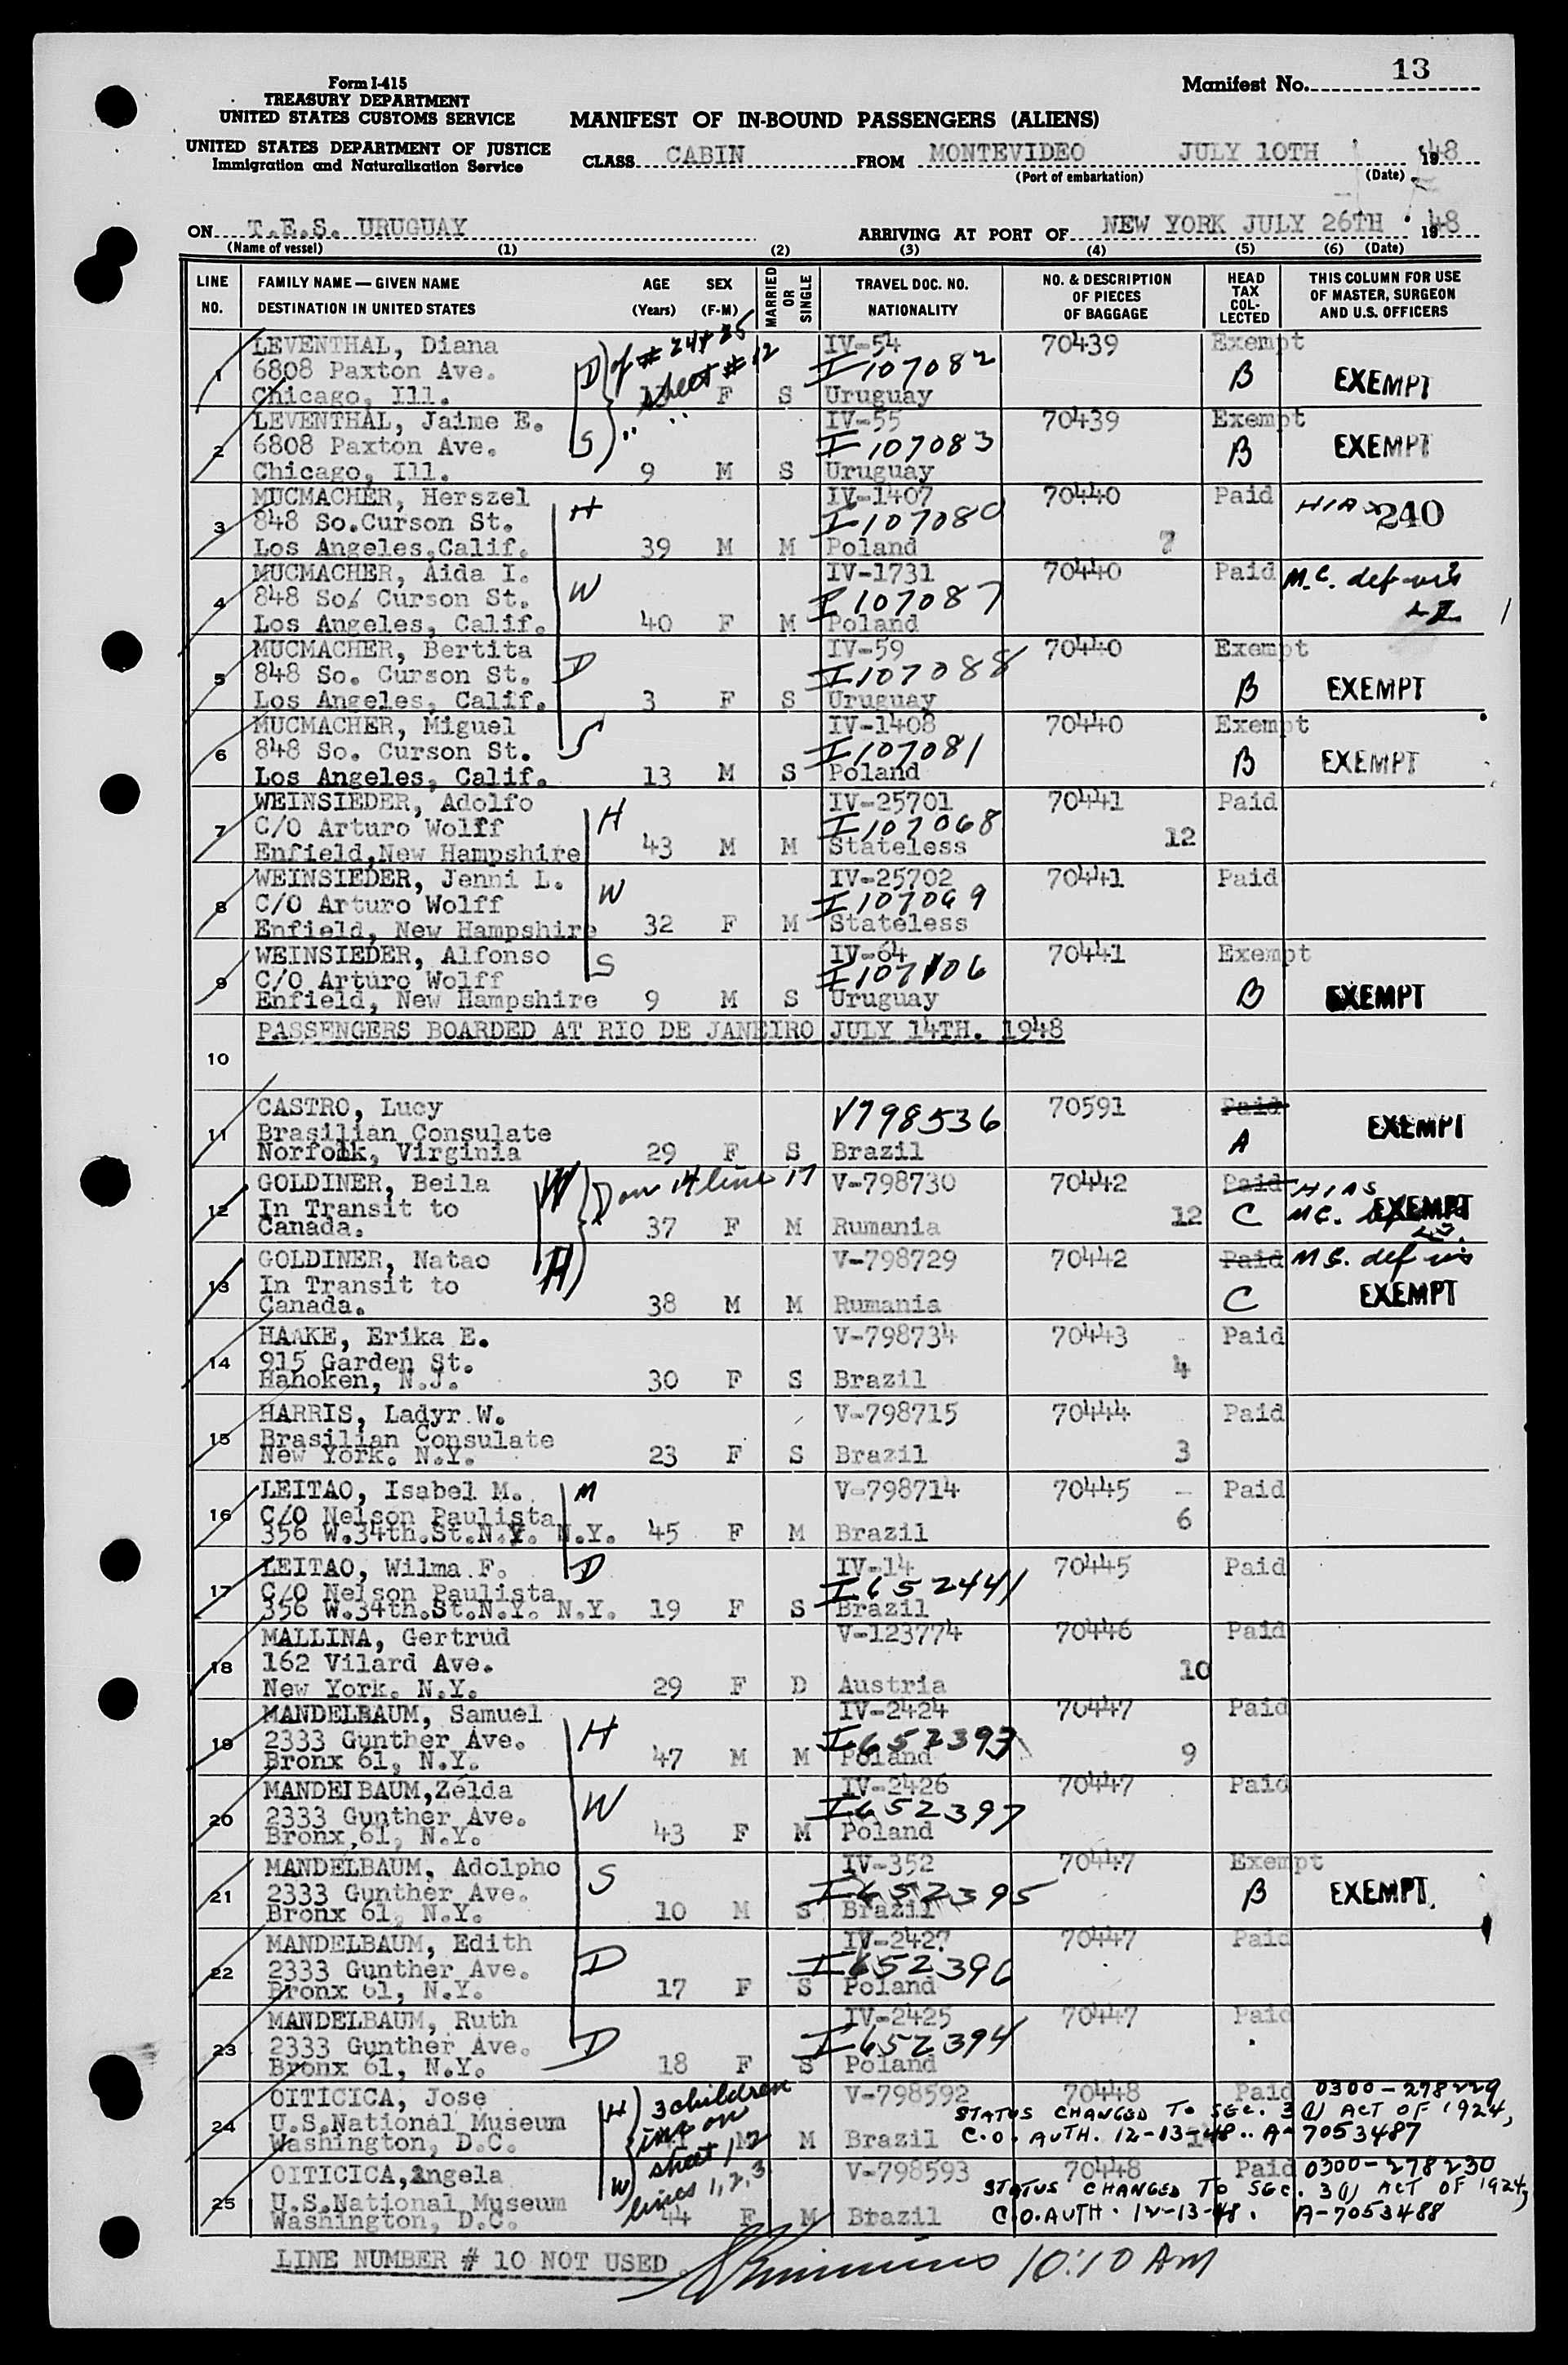 Form I-415
TREASURY DEPARTMENT
UNITED STATES CUSTOMS SERVICE
UNITED STATES DEPARTMENT OF JUSTICE
Immigration and Naturalization Service
Manifest No. 13
MANIFEST OF IN-BOUND PASSENGERS (ALIENS)
CLASS CABIN FROM MONTEVIDEO JULY 10TH 1948
(Port of embarkation) (Date)
ON T.E.S. URUGUAY ARRIVING AT PORT OF NEW YORK JULY 26TH 1948
(Name of vessel) (1) (2) (3) (4) (5) (6) (Date)
LINE NO. FAMILY NAME — GIVEN NAME DESTINATION IN UNITED STATES AGE (Years) SEX (F-M) MARRIED OR SINGLE TRAVEL DOC. NO. NATIONALITY NO. & DESCRIPTION OF PIECES OF BAGGAGE HEAD TAX COLLECTED THIS COLUMN FOR USE OF MASTER, SURGEON AND U.S. OFFICERS
LEVENTHAL, Diana D of # 24 + 25 IV-54 70439 Exempt
1 6808 Paxton Ave. sheet # 12 I 107082 B EXEMPT
Chicago, Ill. F S Uruguay
LEVENTHAL, Jaime E. " " IV-55 70439 Exempt
2 6808 Paxton Ave. S I 107083 B EXEMPT
Chicago, Ill. 9 M S Uruguay
MUCMACHER, Herszel H IV-1407 70440 Paid HIAS
3 848 So.Curson St. I 107080 240
Los Angeles,Calif. 39 M M Poland 7
MUCMACHER, Aida I. IV-1731 70440 Paid M.C. def vis
4 848 So/ Curson St. W I 107087
Los Angeles, Calif. 40 F M Poland
MUCMACHER, Bertita IV-59 70440 Exempt
5 848 So. Curson St. D I 107088 B EXEMPT
Los Angeles, Calif. 3 F S Uruguay
MUCMACHER, Miguel IV-1408 70440 Exempt
6 848 So. Curson St. S I 107081 B EXEMPT
Los Angeles, Calif. 13 M S Poland
WEINSIEDER, Adolfo H IV-25701 70441 Paid
7 C/O Arturo Wolff I 107068 12
Enfield,New Hampshire 43 M M Stateless
WEINSIEDER, Jenni L. IV-25702 70441 Paid
8 C/O Arturo Wolff W I 107069
Enfield, New Hampshire 32 F M Stateless
WEINSIEDER, Alfonso S IV-64 70441 Exempt
9 C/O Arturo Wolff I 107106 B EXEMPT
Enfield, New Hampshire 9 M S Uruguay
PASSENGERS BOARDED AT RIO DE JANEIRO JULY 14TH. 1948
10
CASTRO, Lucy V798536 70591 Paid
11 Brasilian Consulate A EXEMPT
Norfolk, Virginia 29 F S Brazil
GOLDINER, Beila W D on 14 line 17 V-798730 70442 Paid HIAS
12 In Transit to 12 C M.C. EXEMPT
Canada. 37 F M Rumania
GOLDINER, Natao H V-798729 70442 Paid M.C. def vis
13 In Transit to C EXEMPT
Canada. 38 M M Rumania
HAAKE, Erika E. V-798734 70443 Paid
14 915 Garden St. 4
Hahoken, N.J. 30 F S Brazil
HARRIS, Ladyr W. V-798715 70444 Paid
15 Brasilian Consulate 3
New York. N.Y. 23 F S Brazil
LEITAO, Isabel M. M V-798714 70445 Paid
16 C/O Nelson Paulista 6
356 W.34th.St.N.Y. N.Y. 45 F M Brazil
LEITAO, Wilma F. D IV-14 70445 Paid
17 C/O Nelson Paulista I 652441
356 W.34th.St.N.Y. N.Y. 19 F S Brazil
MALLINA, Gertrud V-123774 70446 Paid
18 162 Vilard Ave. 10
New York. N.Y. 29 F D Austria
MANDELBAUM, Samuel H IV-2424 70447 Paid
19 2333 Gunther Ave. I 652393 9
Bronx 61, N.Y. 47 M M Poland
MANDELBAUM,Zelda W IV-2426 70447 Paid
20 2333 Gunther Ave. I 652397
Bronx,61, N.Y. 43 F M Poland
MANDELBAUM, Adolpho S IV-352 70447 Exempt
21 2333 Gunther Ave. I 652395 B EXEMPT.
Bronx 61, N.Y. 10 M S Brazil
MANDELBAUM, Edith D IV-2427 70447 Paid
22 2333 Gunther Ave. I 652396
Bronx 61, N.Y. 17 F S Poland
MANDELBAUM, Ruth D IV-2425 70447 Paid
23 2333 Gunther Ave. I 652394
Bronx 61, N.Y. 18 F S Poland
OITICICA, Jose H 3 children V-798592 70448 Paid 0300-278229
24 U.S.National Museum inc on STATUS CHANGED TO SEC. 3 (1) ACT OF 1924,
Washington, D.C. M M Brazil C.O. AUTH. 12-13-48.. A-7053487
OITICICA,Angela W sheet 12 V-798593 70448 Paid 0300-278230
25 U.S.National Museum lines 1,2,3 STATUS CHANGED TO SEC. 3 (1) ACT OF 1924,
Washington, D.C. 44 F M Brazil C.O. AUTH. 12-13-48. A-7053488
LINE NUMBER # 10 NOT USED. 10:10 AM